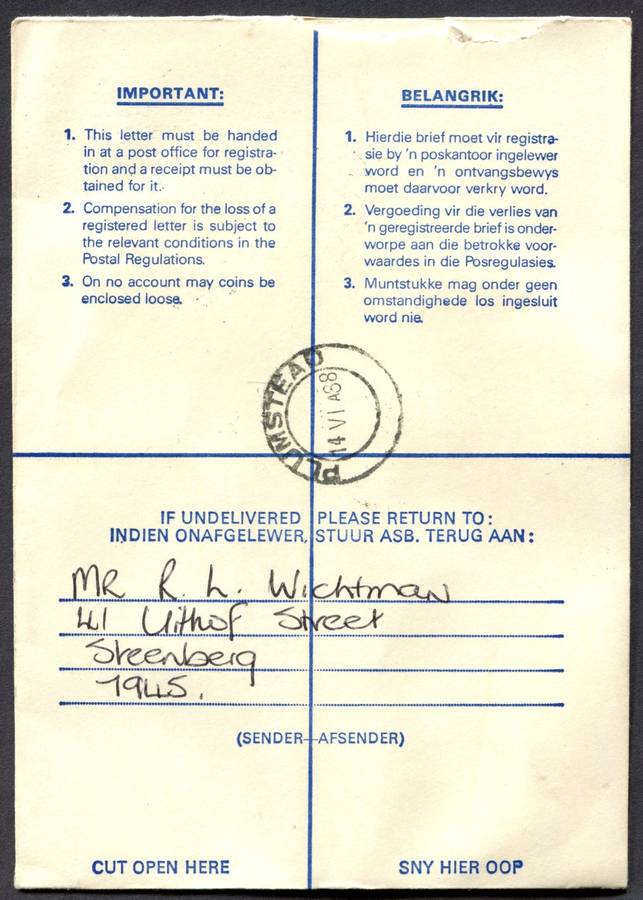 IMPORTANT:
1. This letter must be handed
in at a post office for registra-
tion and a receipt must be ob-
tained for it.
2. Compensation for the loss of a
registered letter is subject to
the relevant conditions in the
Postal Regulations.
3. On no account may coins be
enclosed loose.
BELANGRIK:
1. Hierdie brief moet vir registra-
sie by 'n poskantoor ingelewer
word en 'n ontvangsbewys
moet daarvoor verkry word.
2. Vergoeding vir die verlies van
'n geregistreerde brief is onder-
worpe aan die betrokke voor-
waardes in die Posregulasies.
3. Muntstukke mag onder geen
omstandighede los ingesluit
word nie.
PLUMSTEAD
14 VI A68
IF UNDELIVERED PLEASE RETURN TO:
INDIEN ONAFGELEWER, STUUR ASB. TERUG AAN:
MR R. L. Wichtman
41 Uithof Street
Steenberg
7945.
(SENDER—AFSENDER)
CUT OPEN HERE
SNY HIER OOP